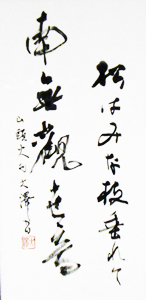 松はみな枝垂れて
南無觀世音
山頭火句